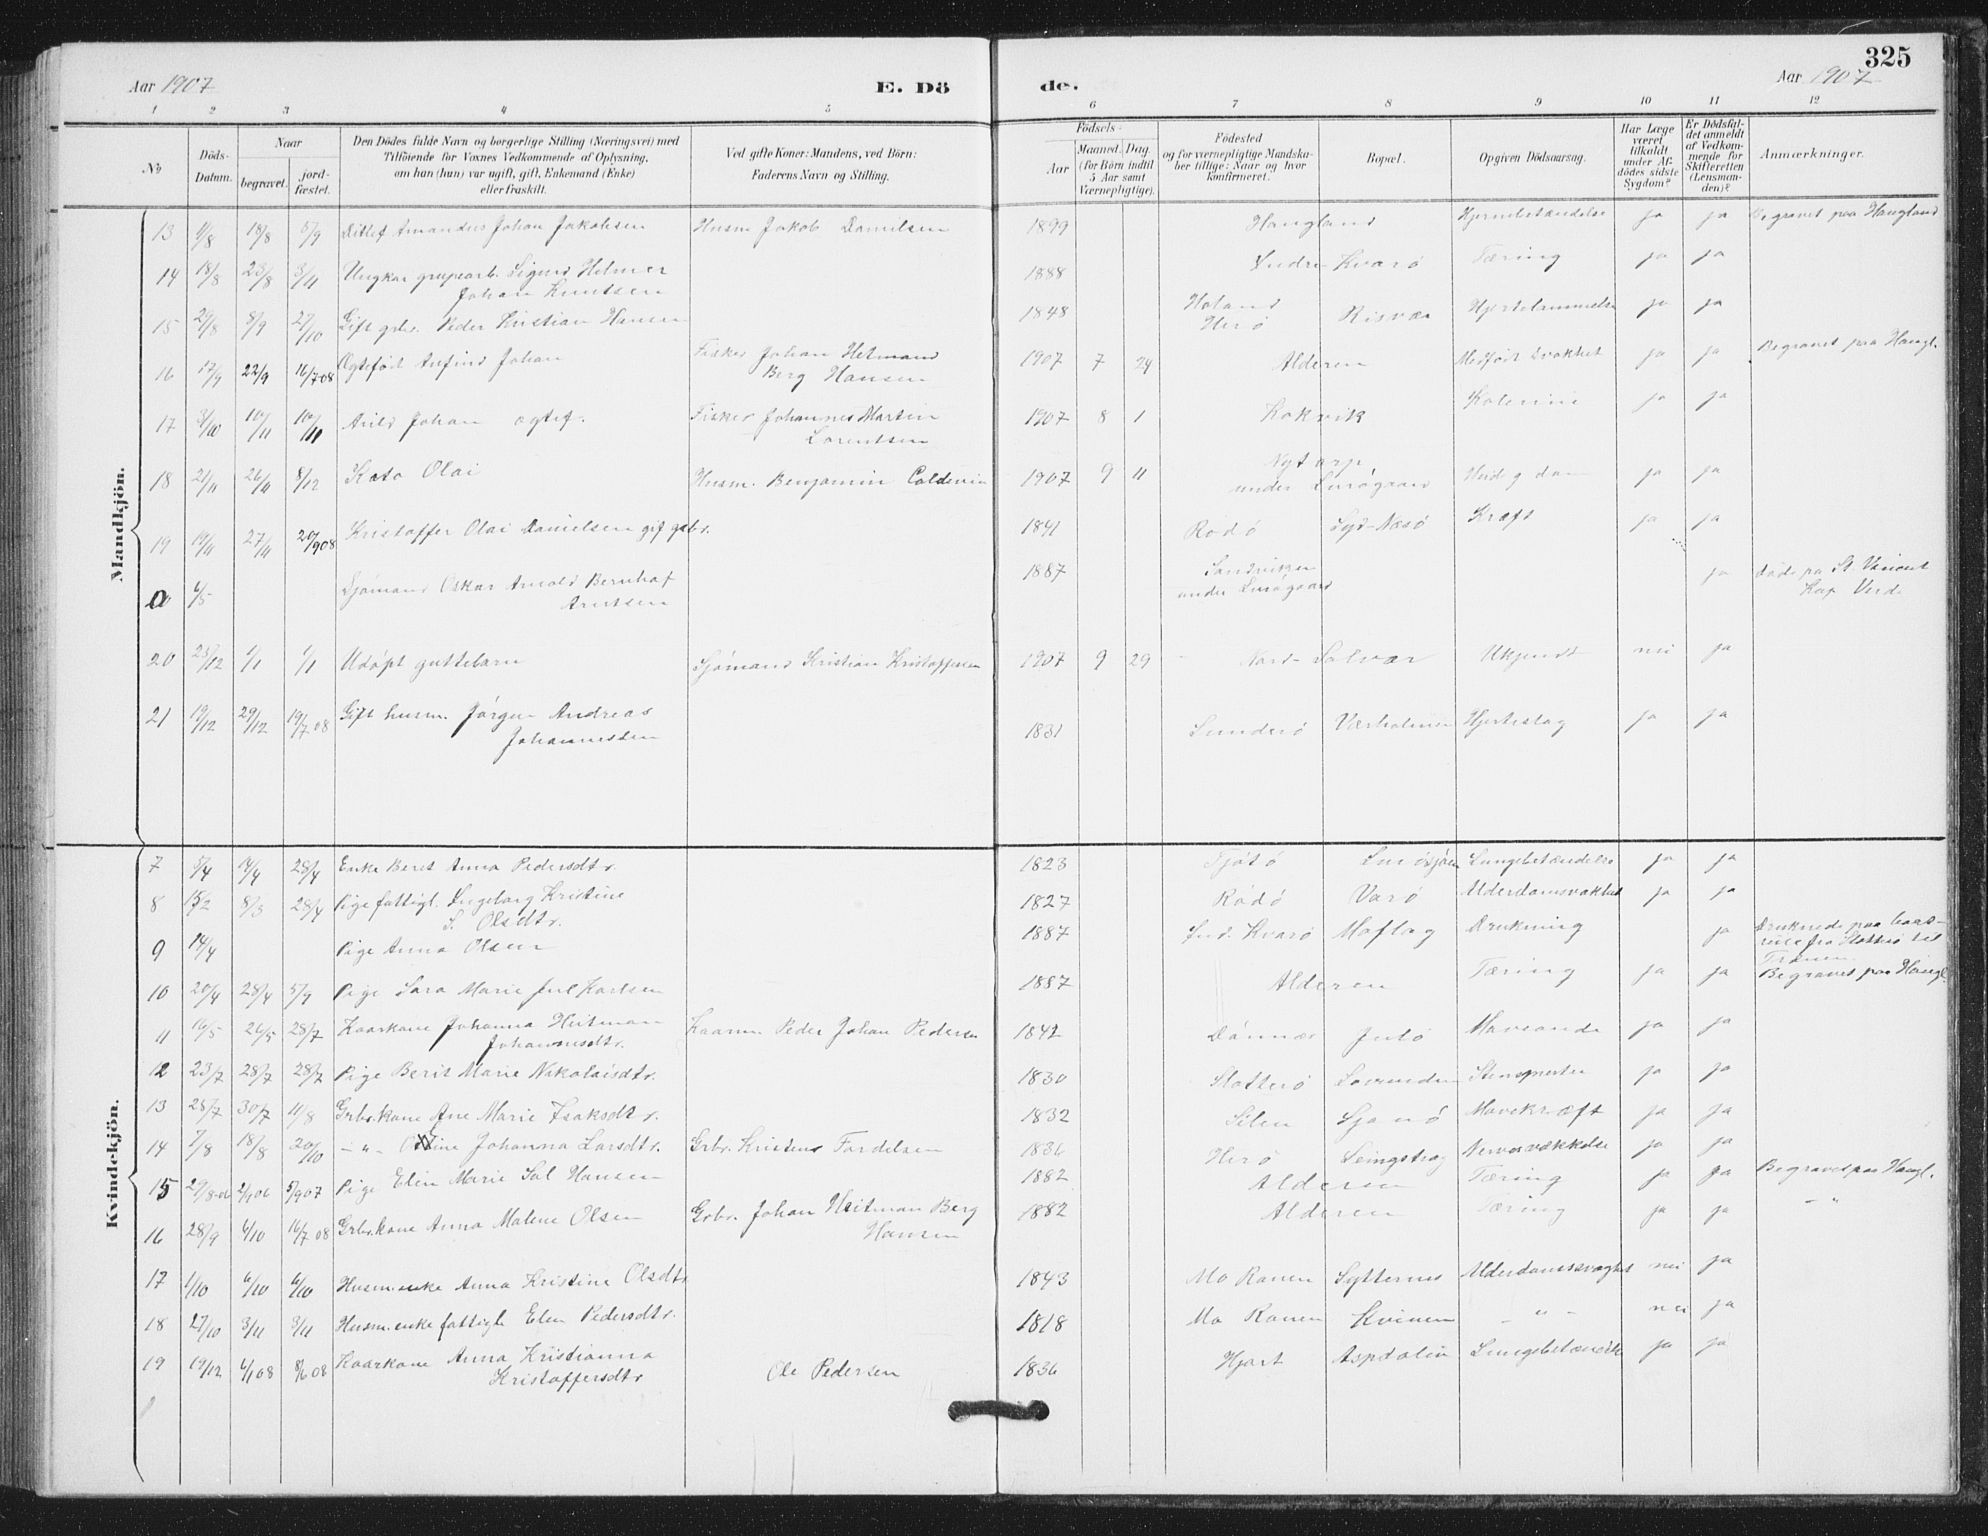 325
Aar 1907
E. Dö
de.
Aar 1907
1 2 3 4 5 6 7 8 9 10 11 12
No
Döds-
Datum.
Naar
begravet.
jord-
fæstet.
Den Dödes fulde Navn og borgerlige Stilling (Næringsvei) med
Tilföiende for Voxnes Vedkommende af Oplysning,
om han (hun) var ugift, gift, Enkemand (Enke)
eller fraskilt.
Ved gifte Koner: Mandens, ved Börn:
Faderens Navn og Stilling.
Födsels-
Aar
Maaned. Dag.
(for Börn indtil
5 Aar samt
Værnepligtige).
Födested
og for værnepligtige Mandska-
ber tillige: Naar og hvor
konfirmeret.
Bopæl.
Opgiven Dödsaarsag.
Har Læge
været
tilkaldt
under Af-
dödes sidste
Sygdom?
Er Dödsfal-
det anmeldt
af Vedkom-
mende for
Skifteretten
(Lensman-
den)?
Anmærkninger.
Mandkjön.
13 18/8 5/9 Ditlef Amandus Johan Jakobsen Husm Jakob Danielsen 1899 Haugland Hjernebetændelse ja ja Begravet paa Haugland
14 18/8 23/8 3/11 Ungkar Sigurd Helmer
Johan Knutsen 1888 Indre Kvarö Tæring ja ja
15 8/9 27/10 Gift gbr. Peder Kristian Hansen 1848 Herö Risvær Hjertelammelse ja ja
16 17/9 22/9 16/7 08 Ægtefödt Anfind Johan Fisker Johan Heitmand
Berg Hansen 1907 7 24 Alderen Medfödt svakhet ja ja Begravet paa Haugl.
17 3/10 10/11 10/11 Arild Johan ægtef. Fisker Johannes Martin
Lorentsen 1907 8 1 Kokvik Kolerine ja ja
18 21/11 26/11 8/12 Kato Olai Husm. Benjamin Coldevin 1907 9 11
under Lurögaard ja ja
19 19/11 27/11 20/9 08 Kristoffer Olai Danielsen gif gbr. 1841 Rödö Syd-Næsö Kræft ja ja
a 6/5 Sjömand Oskar Arnold Bernhof
Arntsen 1887 Sandviken
under Lurögaard ja Döde paa St Vincent
Kap Verde
20 23/12 1/1 1/1 Udöpt guttebarn Sjömand Kristian Kristoffersen 1907 9 29 Nord-Solvær Ukjendt nei ja
21 19/12 29/12 19/7 08 Gift husm. Jörgen Andreas
Johannessen 1831 Sunderö Værholmen Hjerteslag ja ja
Kvindekjön.
7 5/4 14/4 28/4 Enke Beret Anna Pedersdtr. 1823 Tjötö Lurösjöen Lungebetændelse ja ja
8 15/2 8/3 28/4 Pige fattigl. Ingeborg Kristine
S. Olsdtr. 1827 Rödö Varö Alderdomsvakhet ja ja
9 14/4 Pige Anna Olsen 1887 Ind. Kvarö Moflag Drukning ja Druknede paa baat-
reise fra Slotterö til
Trænen
10 20/4 28/4 5/9 Pige Sara Marie Jul Karlsen 1887 Alderen Tæring ja ja Begravet paa Haugl.
11 16/5 26/5 28/7 Kaarkone Johanna Heitman
Johannesdtr. Kaarm. Peder Johan Pedersen 1842 Dönnæs ja ja
12 23/7 28/7 28/7 Pige Berit Marie Nikolaisdtr. 1830 Slotterö Lovunden ja ja
13 28/7 30/7 11/8 Grbr.kone Ane Marie Isaksdtr. 1832 Selsö Mavekræft ja ja
14 7/8 18/8 20/10 -"- Johanna Larsdtr. Grbr. Kristens Tordelsen 1836 Herö ja ja
15 29/8-06 2/9 06 5/9 07 Pige Elen Marie Sal Hansen 1882 Alderen Tæring ja ja Begravet paa Haugl.
16 28/9 6/10 16/7 08 Grbr.kone Anna Malene Olsen Grbr. Johan Heitman Berg
Hansen 1882 Alderen Tæring ja ja -"-
17 1/10 6/10 6/10 Husm.enke Anna Kristine Olsdtr. 1843 Mo Ranen Sytternes Alderdomssvaghet nei ja
18 27/10 3/11 3/11 Husm.enke fattigl Elen Pedersdtr. 1818 Mo Ranen Kvinen -"- nei ja
19 19/12 6/1 08 8/6 08 Kaarkone Anna Kristianna
Kristoffersdtr Ole Pedersen 1836 Hjart Aspdalen ja ja